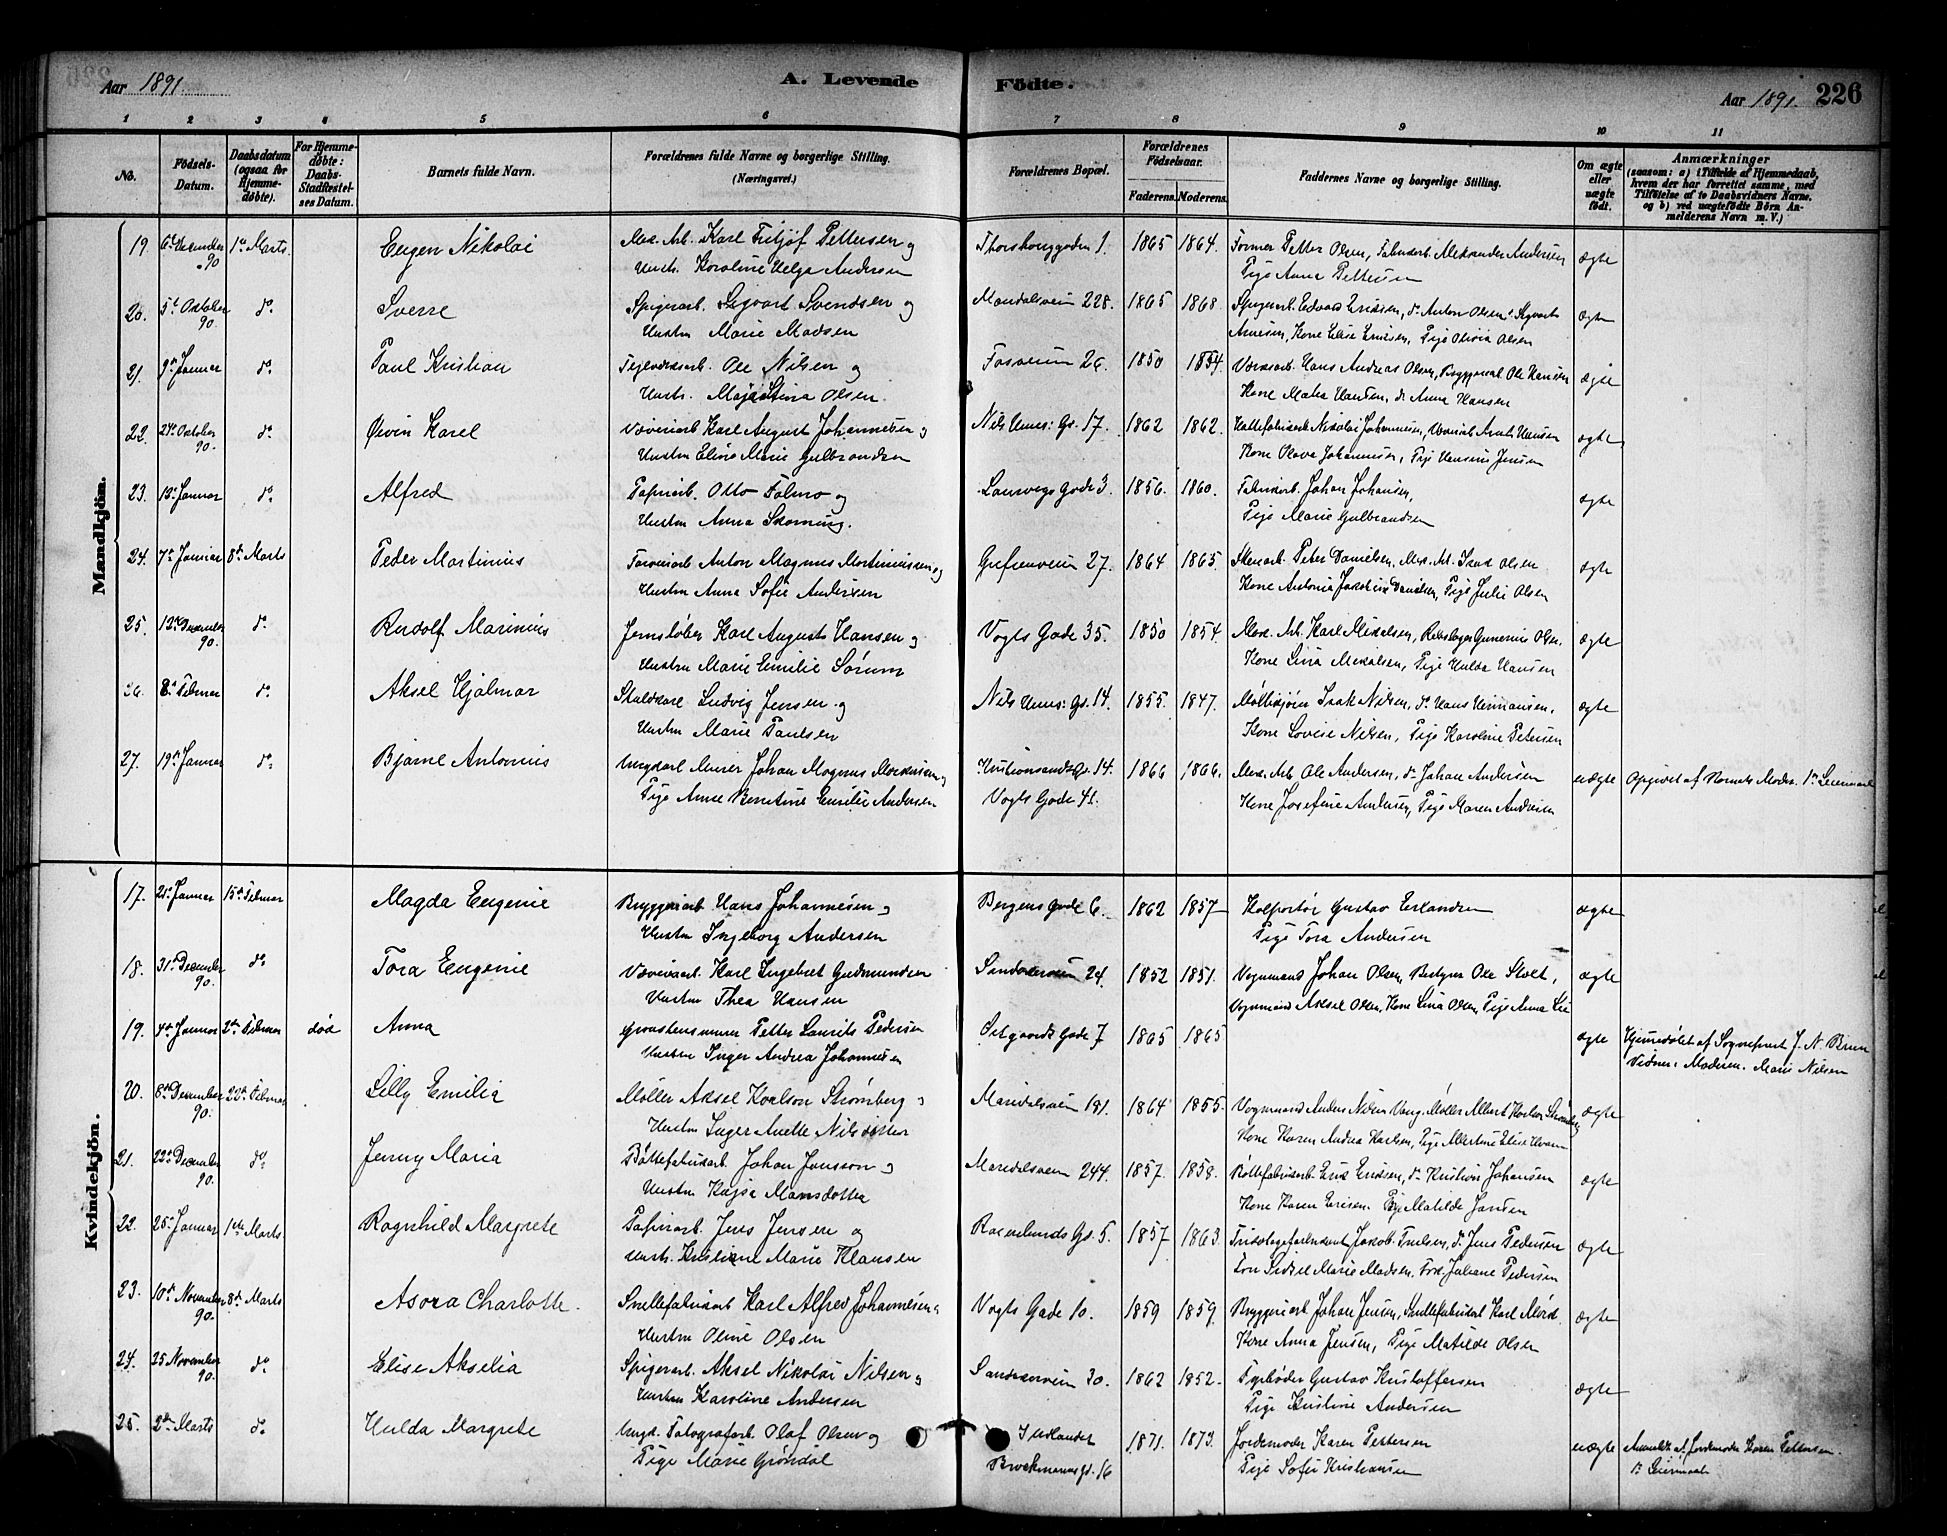 Aar 1891.
A. Levende
Födte.
Aar 1891. 226
1 2 3 4 5 6 7 8 9 10 11
No.
Födsels-
Datum.
Daabsdatum
(ogsaa for
Hjemme-
döbte).
For Hjemme-
døbte:
Daabs-
Stadfæstel-
ses Datum.
Barnets fulde Navn.
Forældrenes fulde Navne og borgerlige Stilling.
(Næringsvei.)
Forældrenes Bopæl.
Forældrenes
Födselsaar.
Faderens. Moderens.
Faddernes Navne og borgerlige Stilling.
Om ægte
eller
uægte
født.
Anmærkninger
(saasom: a) i Tilfælde af Hjemmedaab,
hvem der har forrettet samme, med
Tilföielse af to Daabsvidners Navne,
og b) ved uægtefödte Börn An-
melderens Navn m. V.)
Mandkjön.
19. 1ste Marts Eugen Nikolai Karl Fritjof Pettersen og 1. 1865 1864. Former Petter Olsen, Aleksander Andersen ægte
90 Hustr. Karoline Helga Andersen Pige Anna Pettersen
20. 5te Oktober do Sverre Spigerarb. Sigvart Svendsen og 228. 1865 1868. Spigerarb. Edvard Eriksen, do Anton Olsen, Sigvart ægte
90. Hustru Marie Madsen Kone Elise Eriksen, Pige Olivia Olsen
21. 9de Januar do Paul Kristian Ole Nilsen og Fossveien 26. 1850 1854. Hans Andreas Olsen, Ole Hansen ægte
Hustr. Maja Stina Olsen. Kone Mathea Hansen, do Anna Hansen
22. Oktober do Øivin Karel Væveriarb. Karl August Johannesen og Nils Huus: Gd. 17. 1862 1862. Nikolai Johannesen, Hansen ægte
90. Hustru Eline Marie Gulbrandsen Kone Olava Johannesen, Pige Hansine Jensen
23. Januar do Alfred Papirarb. Otto Folmo og Gade 3. 1856. 1860. Johan Johansen, ægte
Hustru Anna Pige Marie Gulbrandsen
24. 7de Januar 8de Marts Peder Martinius Farveriarb Anton Magnus Martiniussen og Grefsenveien 27. 1864 1865. Peter Danielsen, Mek. Arb. Isak Olsen ægte
Hustru Anna Sofie Andersen Kone Antonia Jakobine Danielsen, Pige Julie Olsen
25. December do Rudolf Marinius Karl August Hansen og Vogts Gade 35. 1850 1854. Mek. Arb. Karl Mikalsen, Gunerius Olsen. ægte
90. Hustru Marie Emilie Sørum Kone Lina Mikalsen, Pige Hulda Hansen
26. Februar do Aksel Hjalmar Staldkarl Ludvig Jensen og Nils Huus: Gd. 14. 1855. 1847. Isak Nilsen, do Hans Hermansen, ægte
Hustru Marie Paulsen Kone Lovise Nilsen, Pige Karoline Petersen
27. 19de Januar do Bjarne Antonius Ungkarl Murer Johan Magnus og Kristiansands Gd. 14. 1866 1866. Mek. Arb Ole Andersen, do Johan Andersen uægte Opgivet af Barnets Moder. 1ste Leiermaal
Pige Anne Berntine Emilie Andersen Vogts Gade 41. Kone Josefine Andersen, Pige Maren Andersen
Kvindekjön.
17. 25de Januar 15de Februar Magda Eugenie Bryggeriarb Hans Johannesen og Bergens Gade 6. 1862 1857 Kolportør Gustav Erlandsen ægte
Hustru Ingeborg Andersen Pige Tora Andersen
18. 31te December do Tora Eugenie Væveriarb. Karl Ingebret Gudmundsen 24. 1852 1851. Vognmand Johan Olsen, Bestyrer Ole Stolt, ægte
90. Hustru Thea Hansen Vognmand Aksel Olsen, Kone Lina Olsen, Pige Anna Lie
19. 4de Januar 2den Februar død Anna Petter Laurits Pedersen Gade 7 1865 1865 ægte Hjemmedøbt af Sognepræst J. N. Brun
Hustru Inger Andrea Johannesen Vidner: Marie Nilsen
20. 8de December 22de Februar Lilly Emilia Møller Aksel Karlson Strømberg og Maridalsveien 181. 1864 1855. Vognmand Anders Nilsen Vang, Møller Albert Karlson Strømberg ægte
90. Hustru Inger Anette Nilsdatter Kone Karen Andrea Karlsen, Pige Albertine Elise
21. 22de December do Jenny Maria Bøttefabrikarb. Johan Jansson og Maridalsveien 244. 1857. 1858. Bøttefabrikarb Erik Eriksen, do Kristian Johansen ægte
90. Hustru Kajsa Mansdotter Kone Karen Eriksen. Pige Matilde Jansen
22. 25de Januar 1ste Marts Ragnhild Margrete Papirarb. Jens Jensen og Gd. 5. 1857 1863. Jakob do Jens Pedersen ægte
Hustr. Kristiane Marie Klausen Marie Madsen. Juliane Pedersen
23. 10de November 8de Marts Asora Charlotte. Karl Alfred Johannesen og Vogts Gade 10. 1859 1859. Bryggeriarb Johan Jensen, Karl ægte
90. Hustru Oline Olsen Kone Anna Jensen, Pige Matilde Olsen
24. 25 November do Elise Akselia Spigerarb. Aksel Nikolai Nilsen og 30. 1862 1852. Fyrbøder Gustav Kristoffersen ægte
90. Hustru Karoline Andersen Pige Kristine Andersen
25. 2den Marts do Hulda Margrete Ungk. Fotografarb Olaf Olsen og I Udlandet 1871. 1873. Jordemoder Karen Pettersen uægte Anmeldt af Jordemoder Karen Pettersen.
Pige Marie Grøndal Brockmanns Gd. 16 Pige Sofie Kristiansen Leiermaal